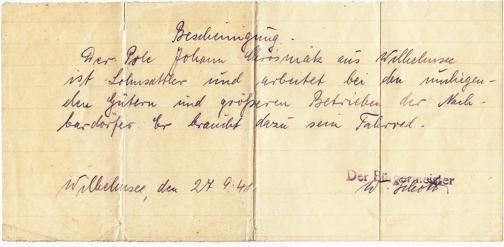 Bescheinigung.
Der Pole Johann aus Wilhelmsee
ist Lohnsattler und arbeitet bei den umliegen-
den Gütern und größeren Betrieben der Nach-
bardörfer. Er braucht dazu sein Fahrrad.
Wilhelmsee, den 27.9.41.
Der Bürgermeister
W.